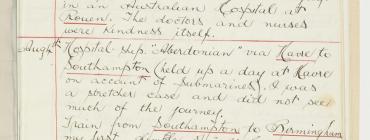 in an Australian Hospital at
Rouen. The doctors and nurses
were kindness itself.
Hospital Ship "Aberdonian" via Havre to
Southampton (held up a day at Havre
on account of submarines). I was
a stretcher case and did not see
much of the journey.
Train from Southampton to Birmingham
my first